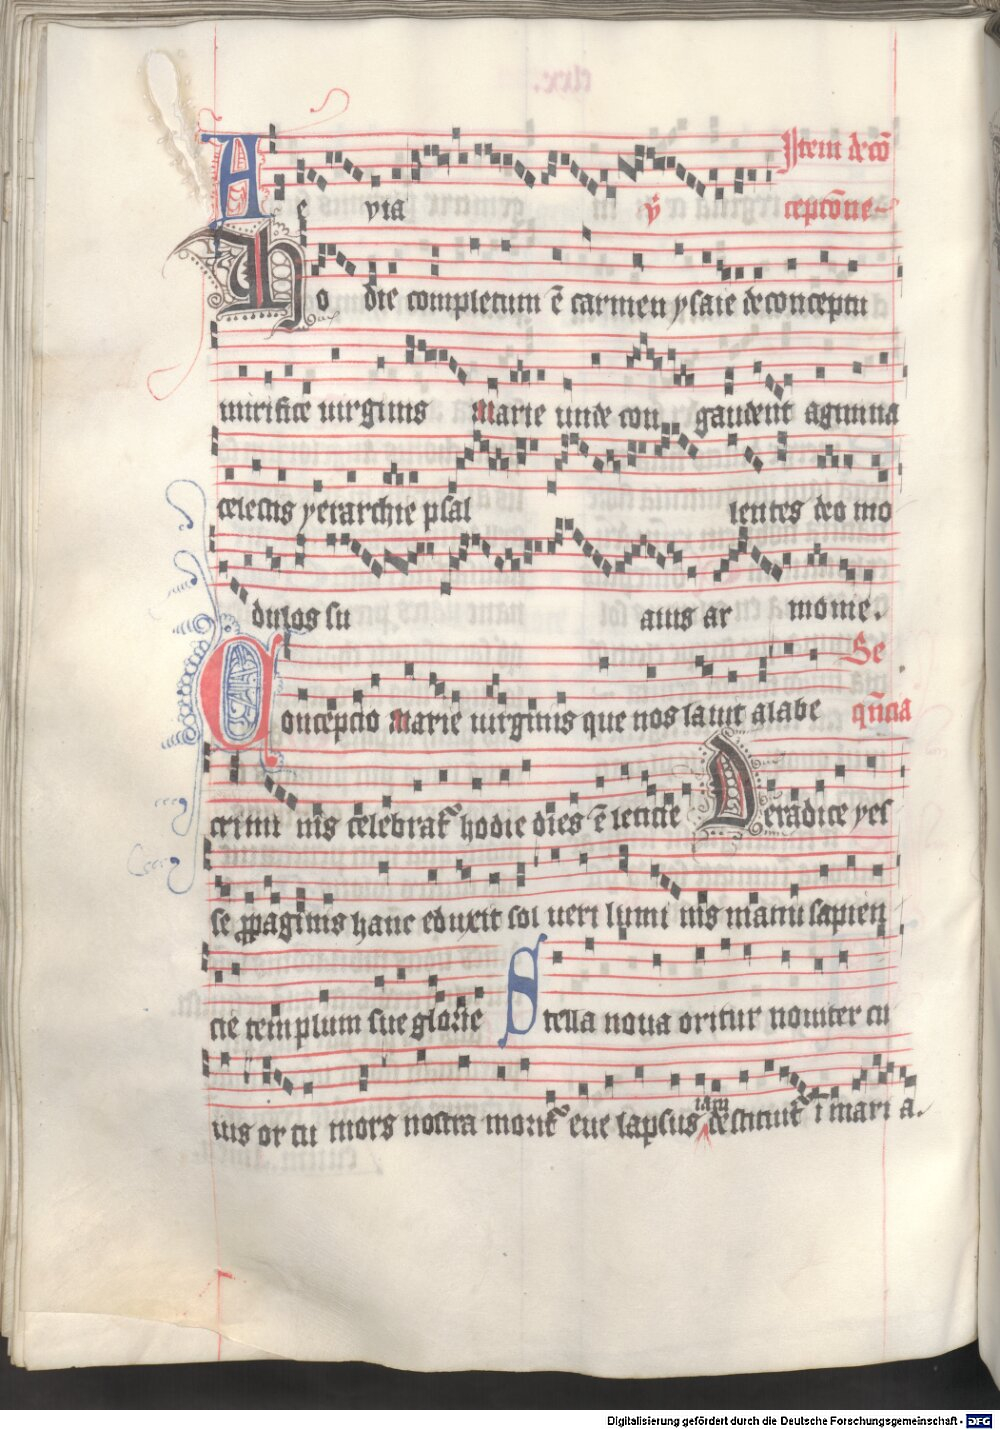 A e via ꝟ Item de cō
cepcōne
Ho die completum ē carmen ysaie de conceptu
mirifice uirginis Marie unde con gaudent agmina
celestis yerarchie psal lentes deo mo
dulos su auis ar monie.
Concepcio Marie uirginis que nos lauit a labe Se
qn̄cia
crimi nis celebrat᷑ hodie dies ē leticie De radice yes
se ꝓpaginis hanc eduxit sol ueri lumi nis manu sapien
cie templum sue glorie Stella noua oritur nouiter cu
ius or tu mors nostra morit᷑ eue lapsus iam destituit᷑ ī mari a.
Digitalisierung gefördert durch die Deutsche Forschungsgemeinschaft - DFG